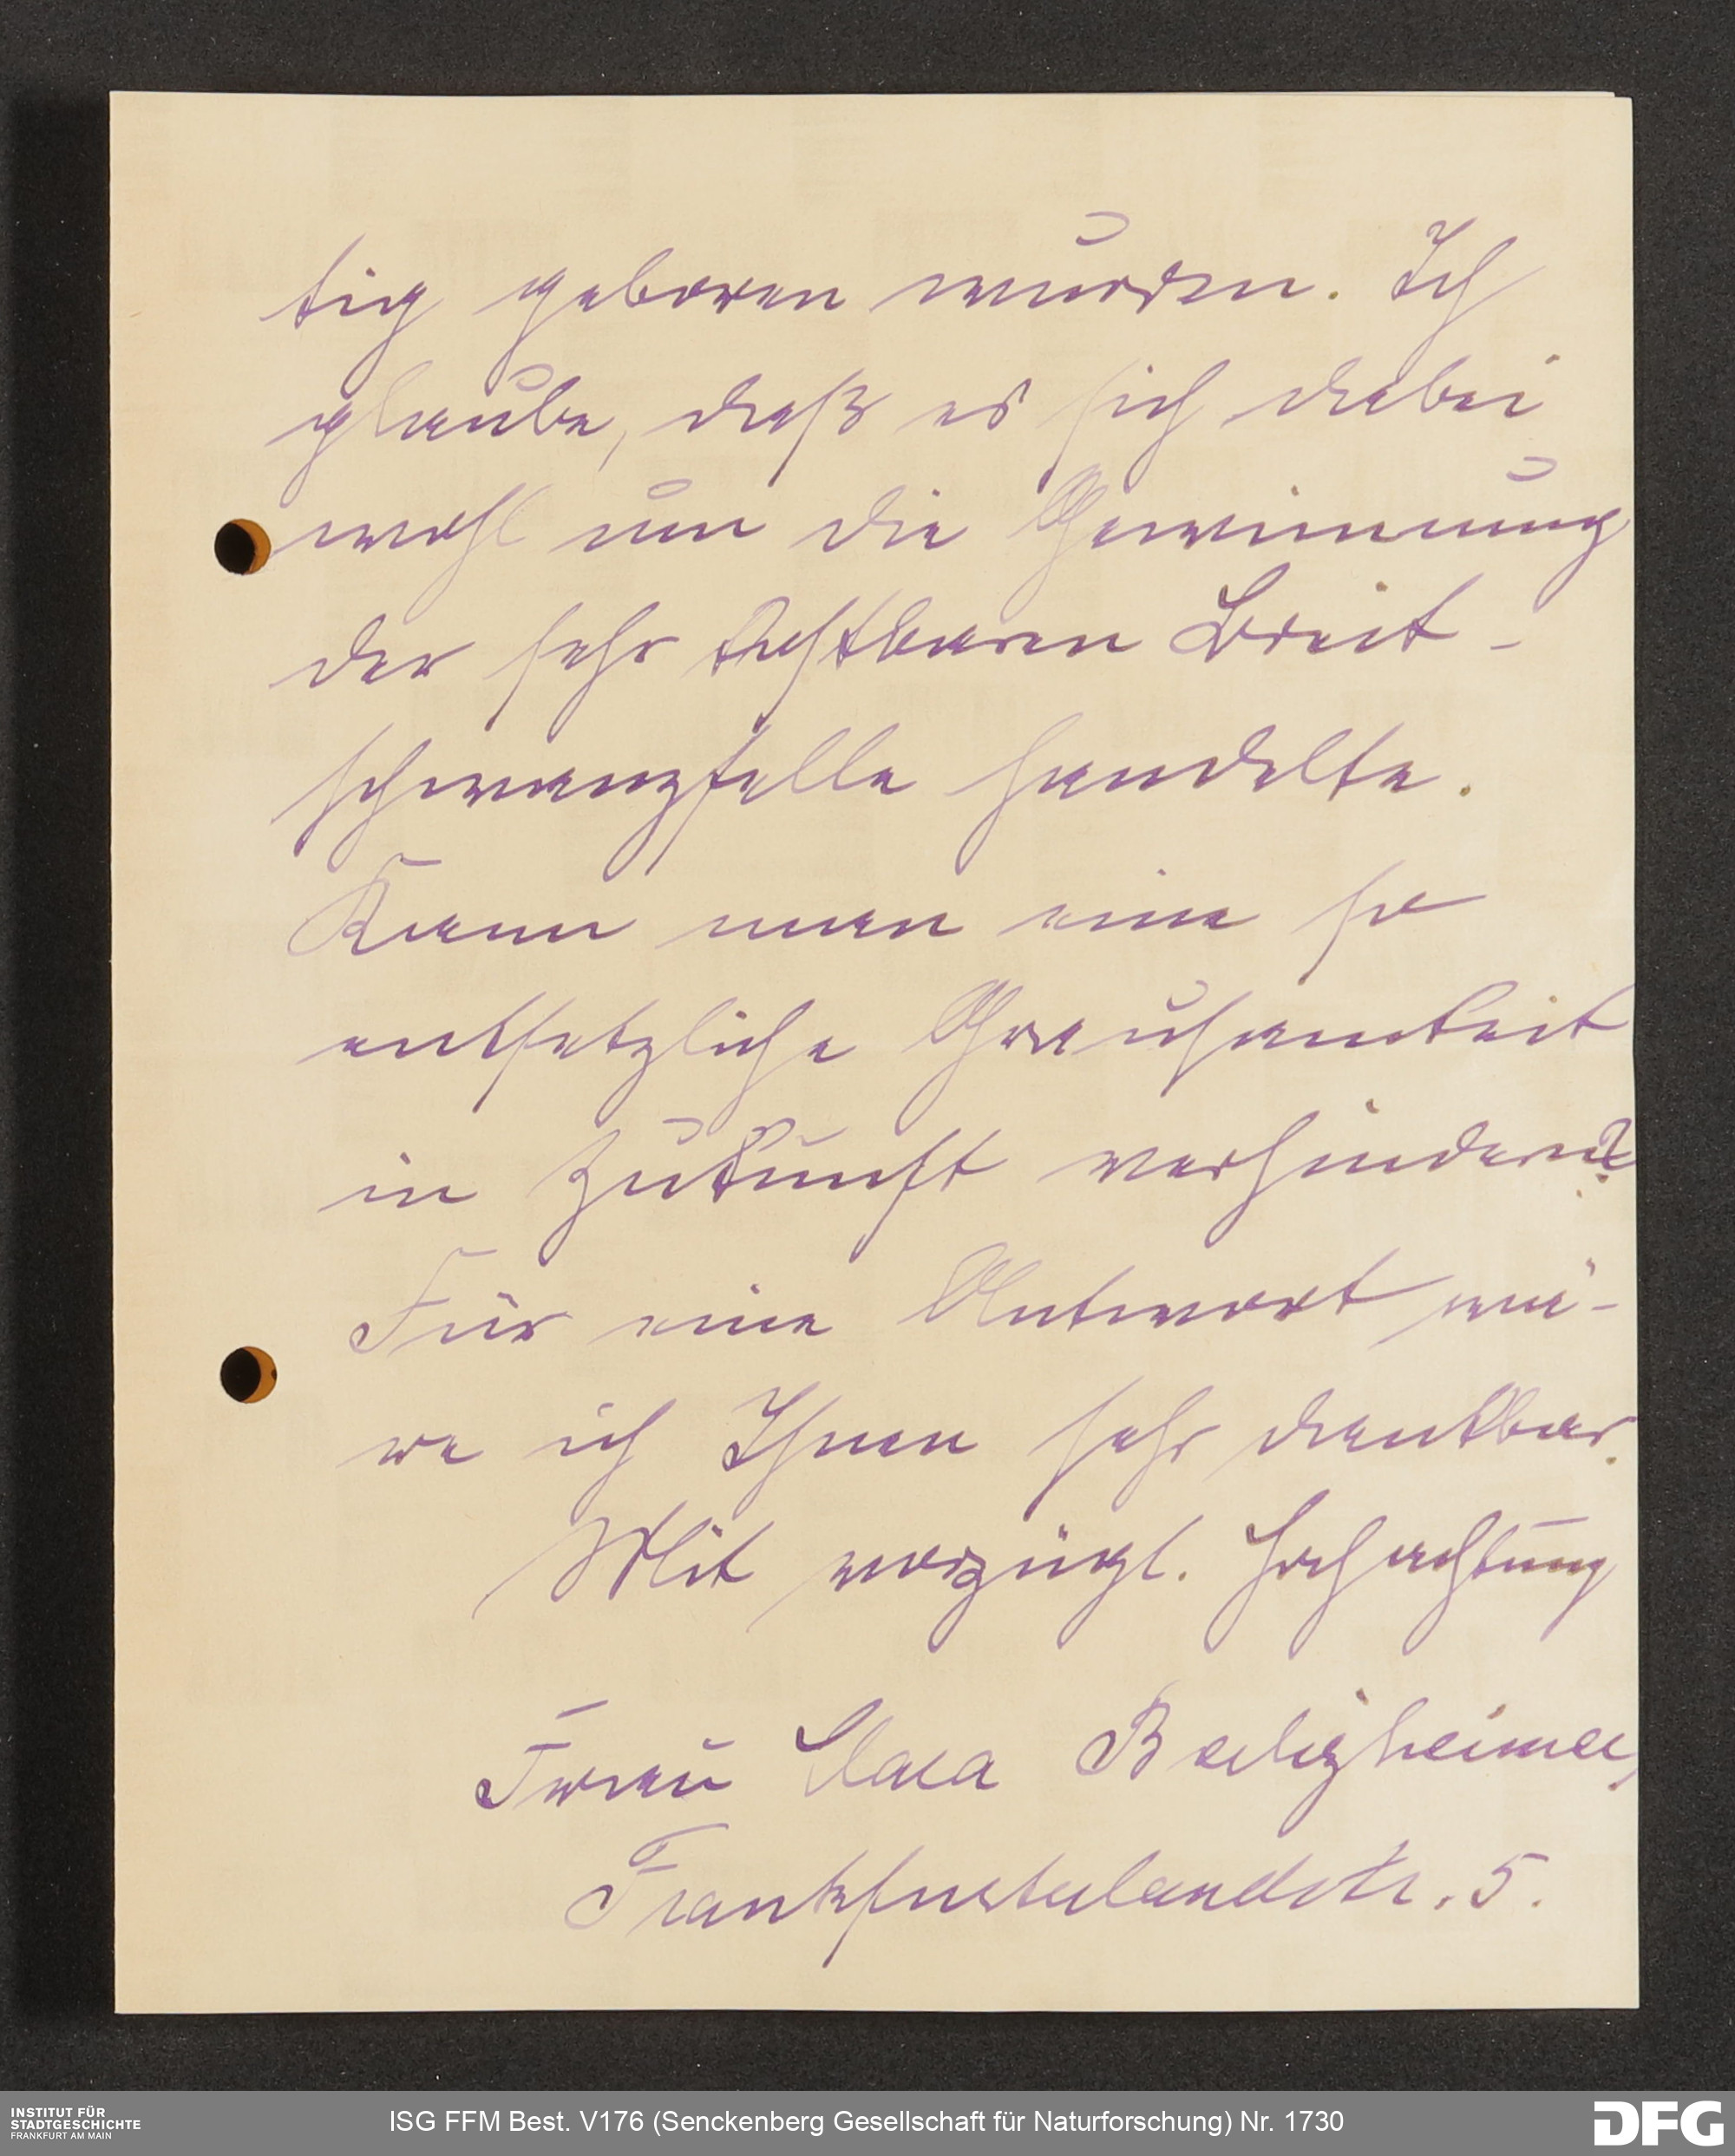 tig geboren wurden. Ich
glaube, daß es sich dabei
wohl um die Gewinnung
der sehr kostbaren Breit-
schwanzfelle handelte.
Kann man eine so
entsetzliche Grausamkeit
in Zukunft verhindern?
Für eine Antwort wä-
re ich Ihnen sehr dankbar.
Mit vorzügl. Hochachtung
Frau Clara
Frankfurterlandstr. 5.
INSTITUT FÜR
STADTGESCHICHTE
FRANKFURT AM MAIN
ISG FFM Best. V176 (Senckenberg Gesellschaft für Naturforschung) Nr. 1730
DFG